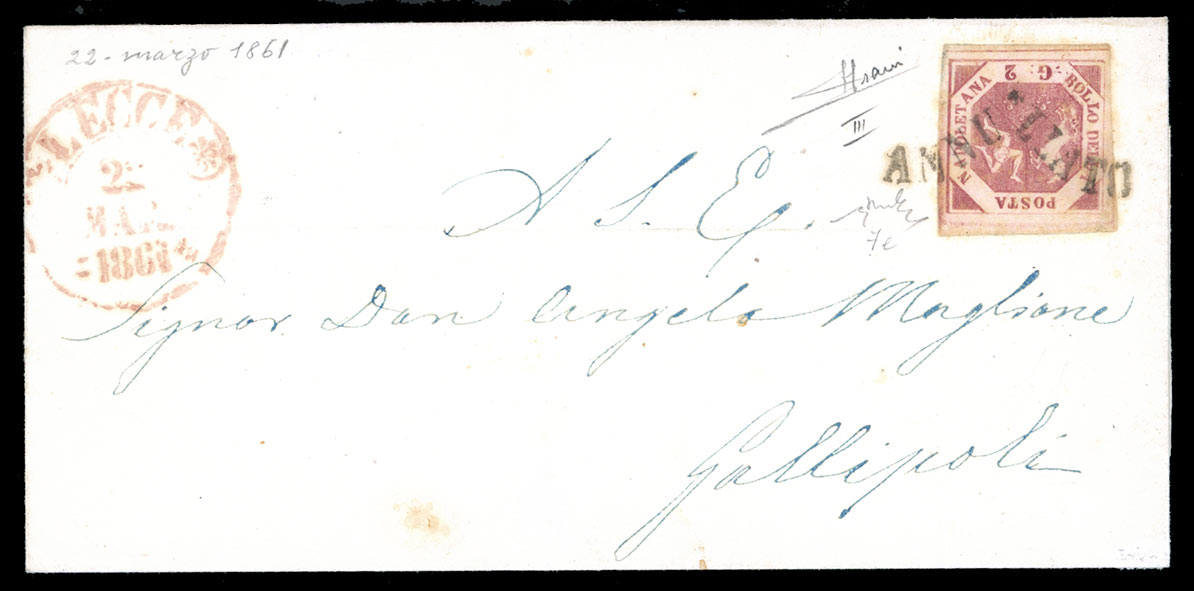 22 - marzo 1861
LECCE
22
MAR
1861
G. 2
BOLLO DELLA
POSTA
NAPOLETANA
ANNULLATO
III
A S. E.
7e
Signor Don Angelo Maglione
Gallipoli